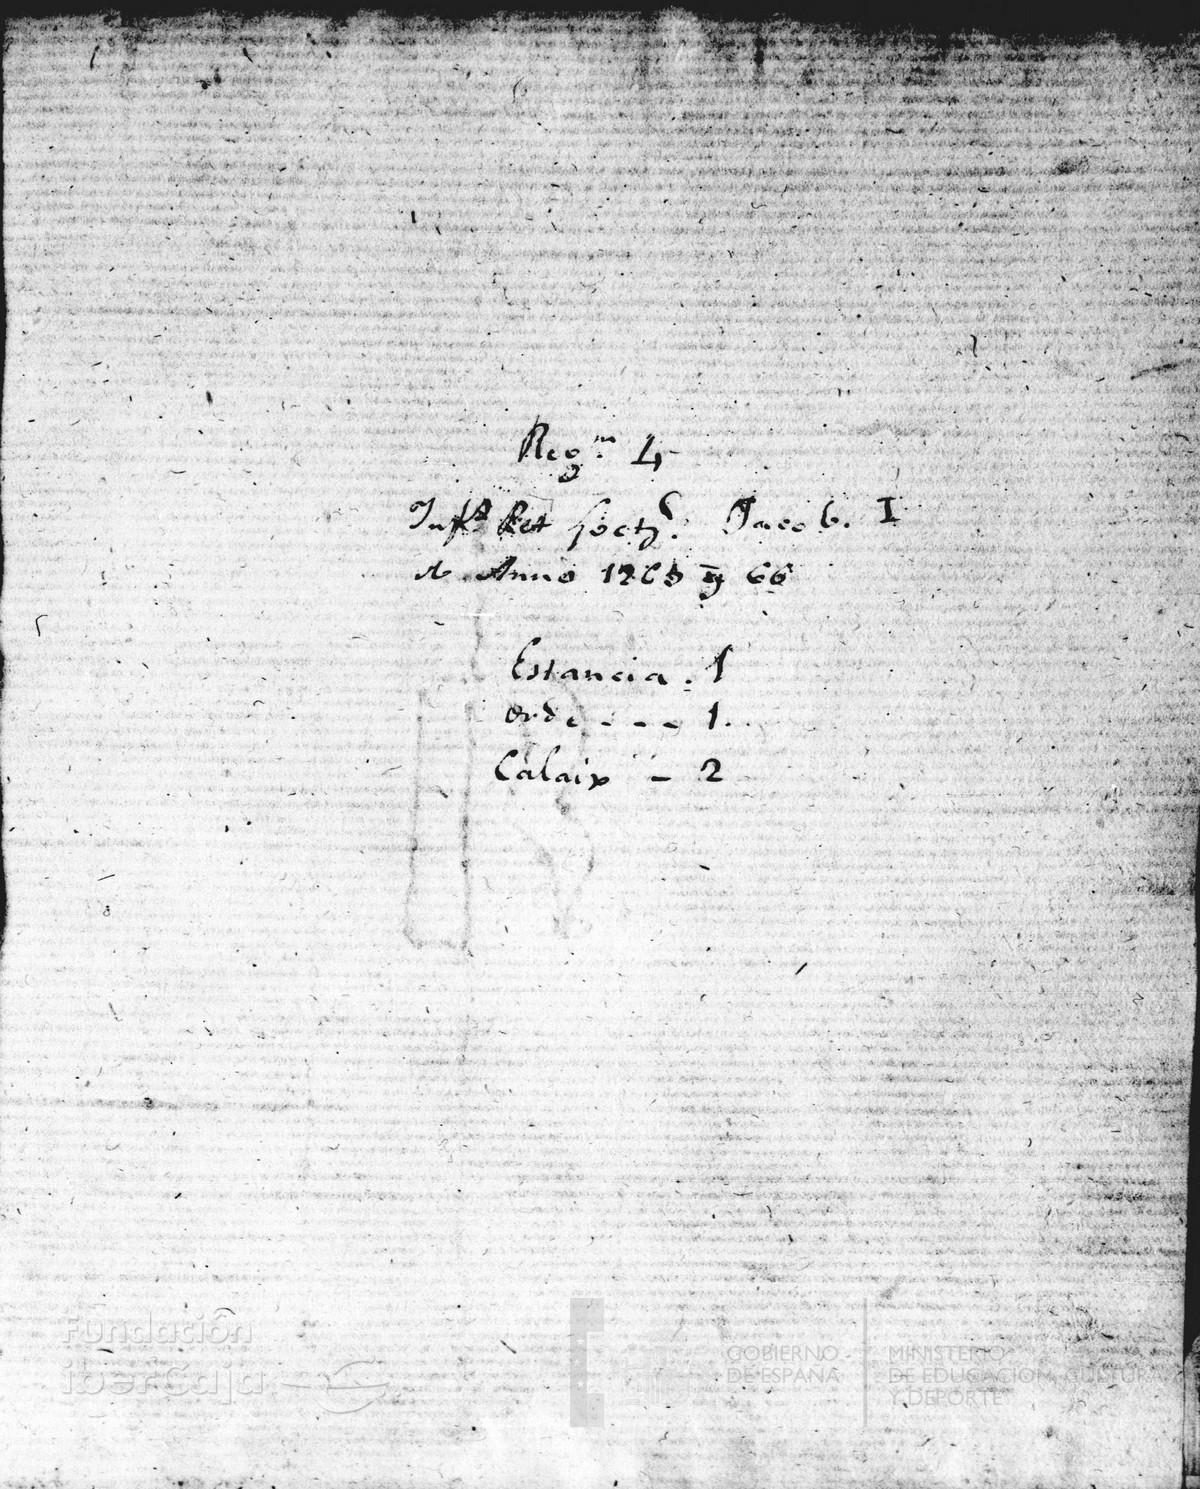 Reg.m 4
Jacob. I
Anno 1265 y 66
Estancia . 1
orde - - - 1.
Calaix - 2
Fundación
iberCaja
GOBIERNO
DE ESPAÑA
MINISTERIO
DE EDUCACIÓN, CULTURA
Y DEPORTE